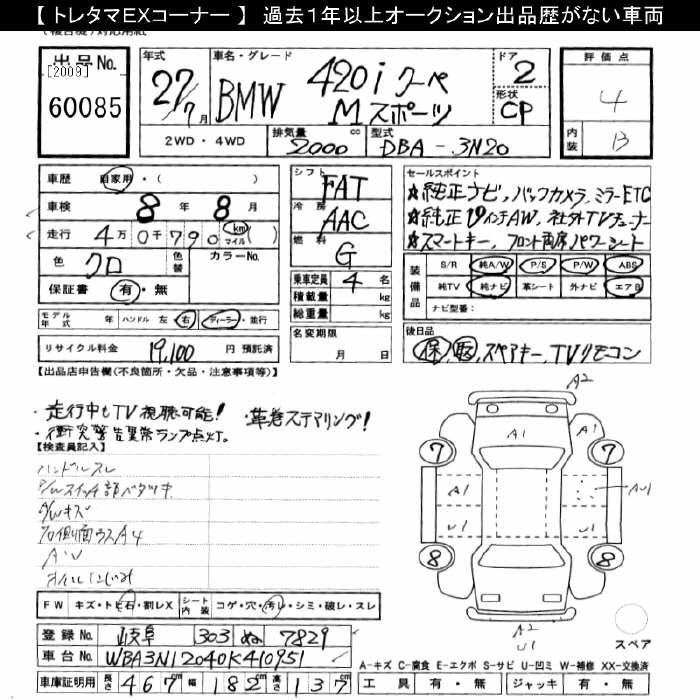 【 トレタマEXコーナー 】 過去1年以上オークション出品歴がない車両
出品No.
[2009]
60085
年式 27/7月
車名・グレード BMW 420i クーペ
Mスポーツ
ドア 2
形状 CP
評価点 4
内装 B
2WD ・ 4WD 排気量 2000 cc 型式 DBA - 3N20
車歴 自家用・( )
車検 8年 8月
走行 4万0千790 km マイル ( )
色 クロ 色替 カラーNo.
保証書 有・無
モデル年式 年 ハンドル 左 右 ディーラー・並行
リサイクル料金 19,100 円 預託済
シフト FAT
冷房 AAC
燃料 G
乗車定員 4 名
積載量 kg
総重量 kg
名変期限
月 日
セールスポイント
★純正ナビ, バックカメラ, ミラーETC
★純正19インチAW, 社外TVチューナー
★スマートキー, フロント両席パワーシート
装備品 S/R 純A/W P/S P/W ABS
純TV 純ナビ 革シート 外ナビ エアB
ナビ型番:
後日品
保, 取, スペアキー, TVリモコン
【出品店申告欄(不良箇所・欠品・注意事項等)】
・走行中もTV視聴可能! ・革巻ステアリング!
・衝突警告異常ランプ点灯。
【検査員記入】
ハンドルスレ
P/Wスイッチ部ベタツキ
A/Wキズ
A2
A1
7 7
A1 AU1
U1 U1
8 8
A2
U1
スペア
FW キズ・トビ石・割レX シート内装 コゲ・穴・汚レ・シミ・破レ・スレ
登録No. 岐阜 303 ぬ 7829
車台No. WBA3N12040K410951
車庫証明用 長さ 467 幅 182 高さ 137
A-キズ C-腐食 E-エクボ S-サビ U-凹ミ W-補修 XX-交換済
工具 有・無 ジャッキ 有・無